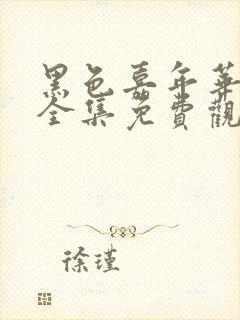 黑色嘉年華
全集免費觀
徐瑾